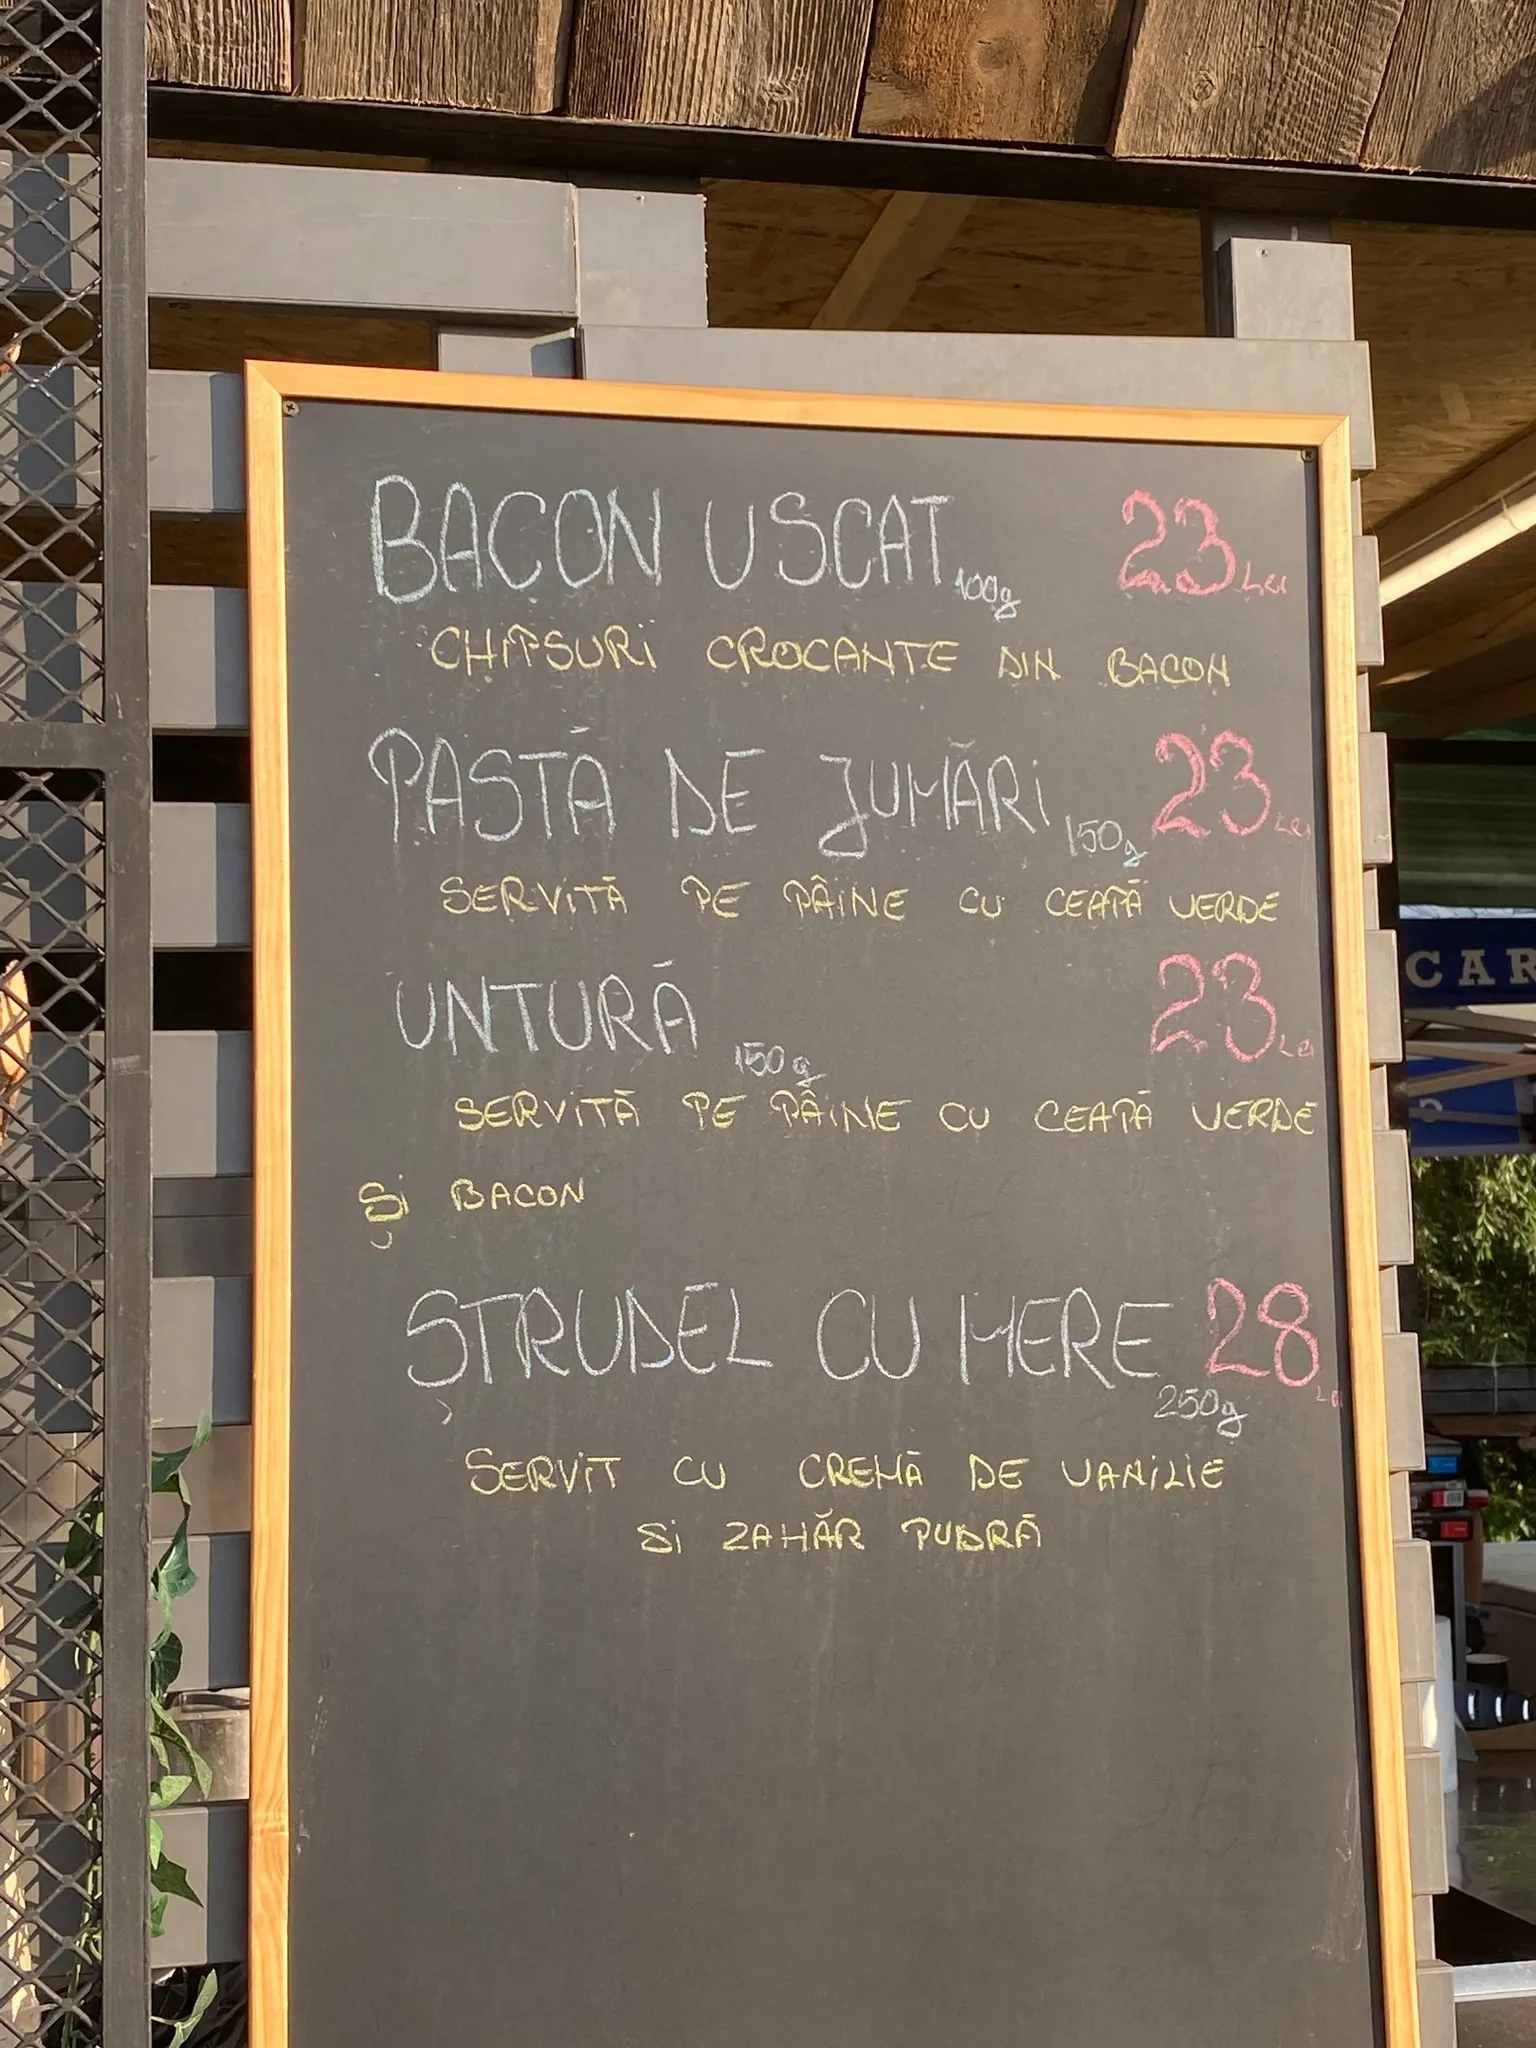 BACON USCAT 100g 23 Lei
CHIPSURI CROCANTE DIN BACON
PASTĂ DE JUMĂRI 150g 23 Lei
SERVITĂ PE PÂINE CU CEAPĂ VERDE
UNTURĂ 150g 23 Lei
SERVITĂ PE PÂINE CU CEAPĂ VERDE
ȘI BACON
ȘTRUDEL CU MERE 250g 28 Lei
SERVIT CU CREMĂ DE VANILIE
SI ZAHĂR PUDRĂ
CAR